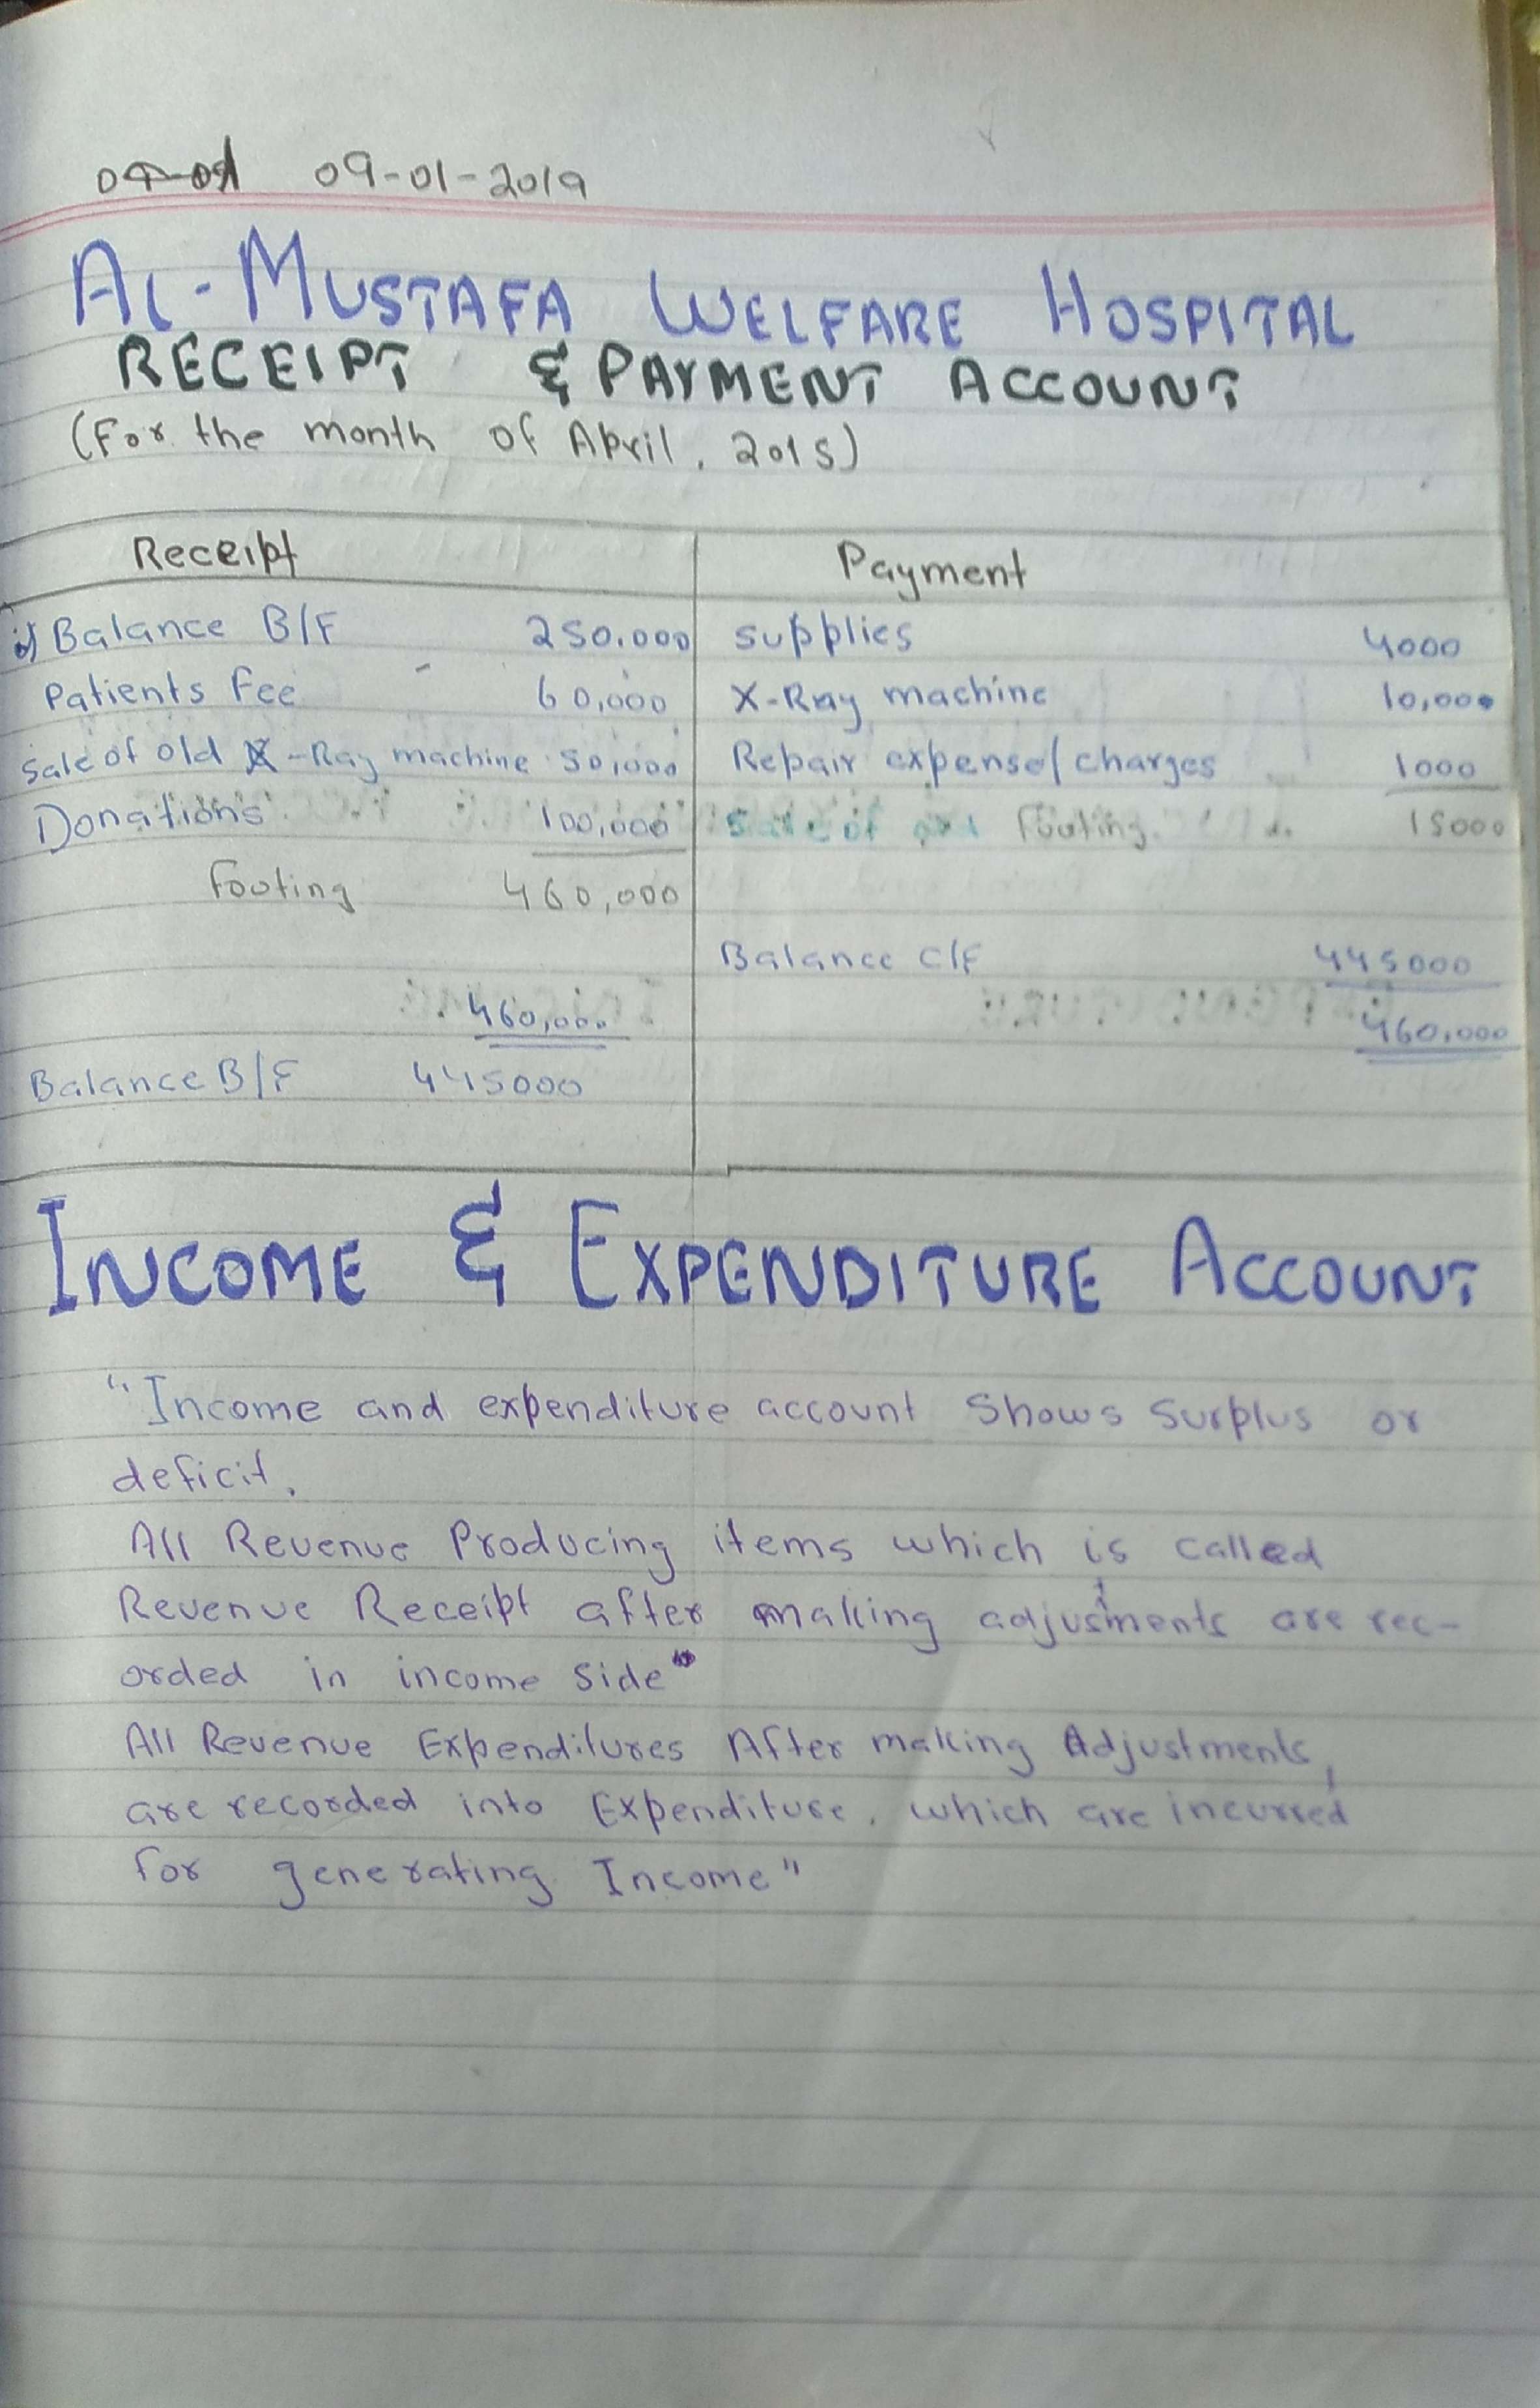 09-01-2019
AL-MUSTAFA WELFARE HOSPITAL
RECEIPT & PAYMENT ACCOUNT
(For the month of April, 2015)
Receipt Payment
Balance B/F 250,000 supplies 4000
Patients fee 60,000 X-Ray machine 10,000
Sale of old X-Ray machine 50,000 Repair expense/charges 1000
Donations 100,000 footing 15000
footing 460,000
Balance C/F 445000
460,000 460,000
Balance B/F 445000
INCOME & EXPENDITURE ACCOUNT
"Income and expenditure account Shows Surplus or
deficit.
All Revenue Producing items which is called
Revenue Receipt after making adjustments are rec-
orded in income side"
All Revenue Expenditures After making Adjustments,
are recorded into Expenditure, which are incurred
for generating Income"